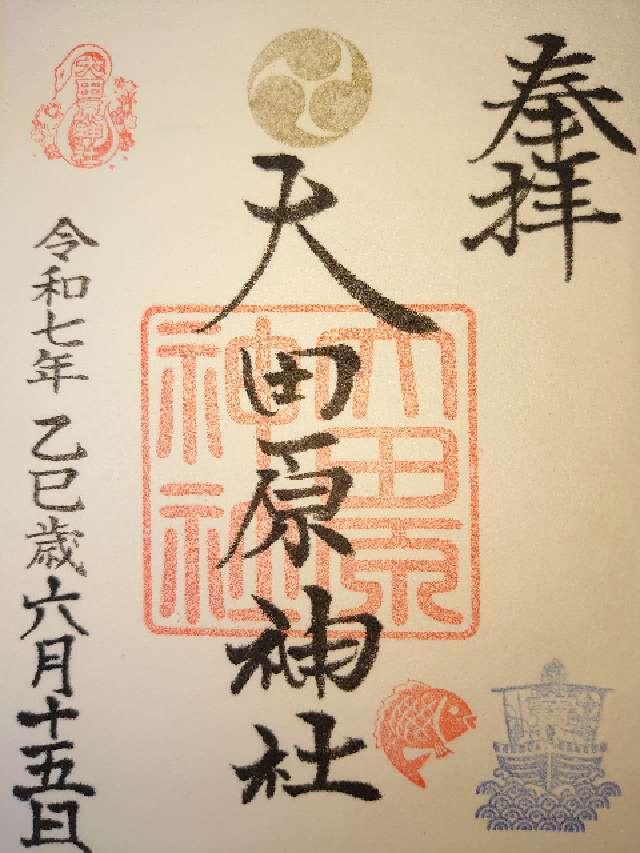 奉拝
大田原神社
大田原
神社
大田原神社
令和七年 乙巳歳 六月十五日